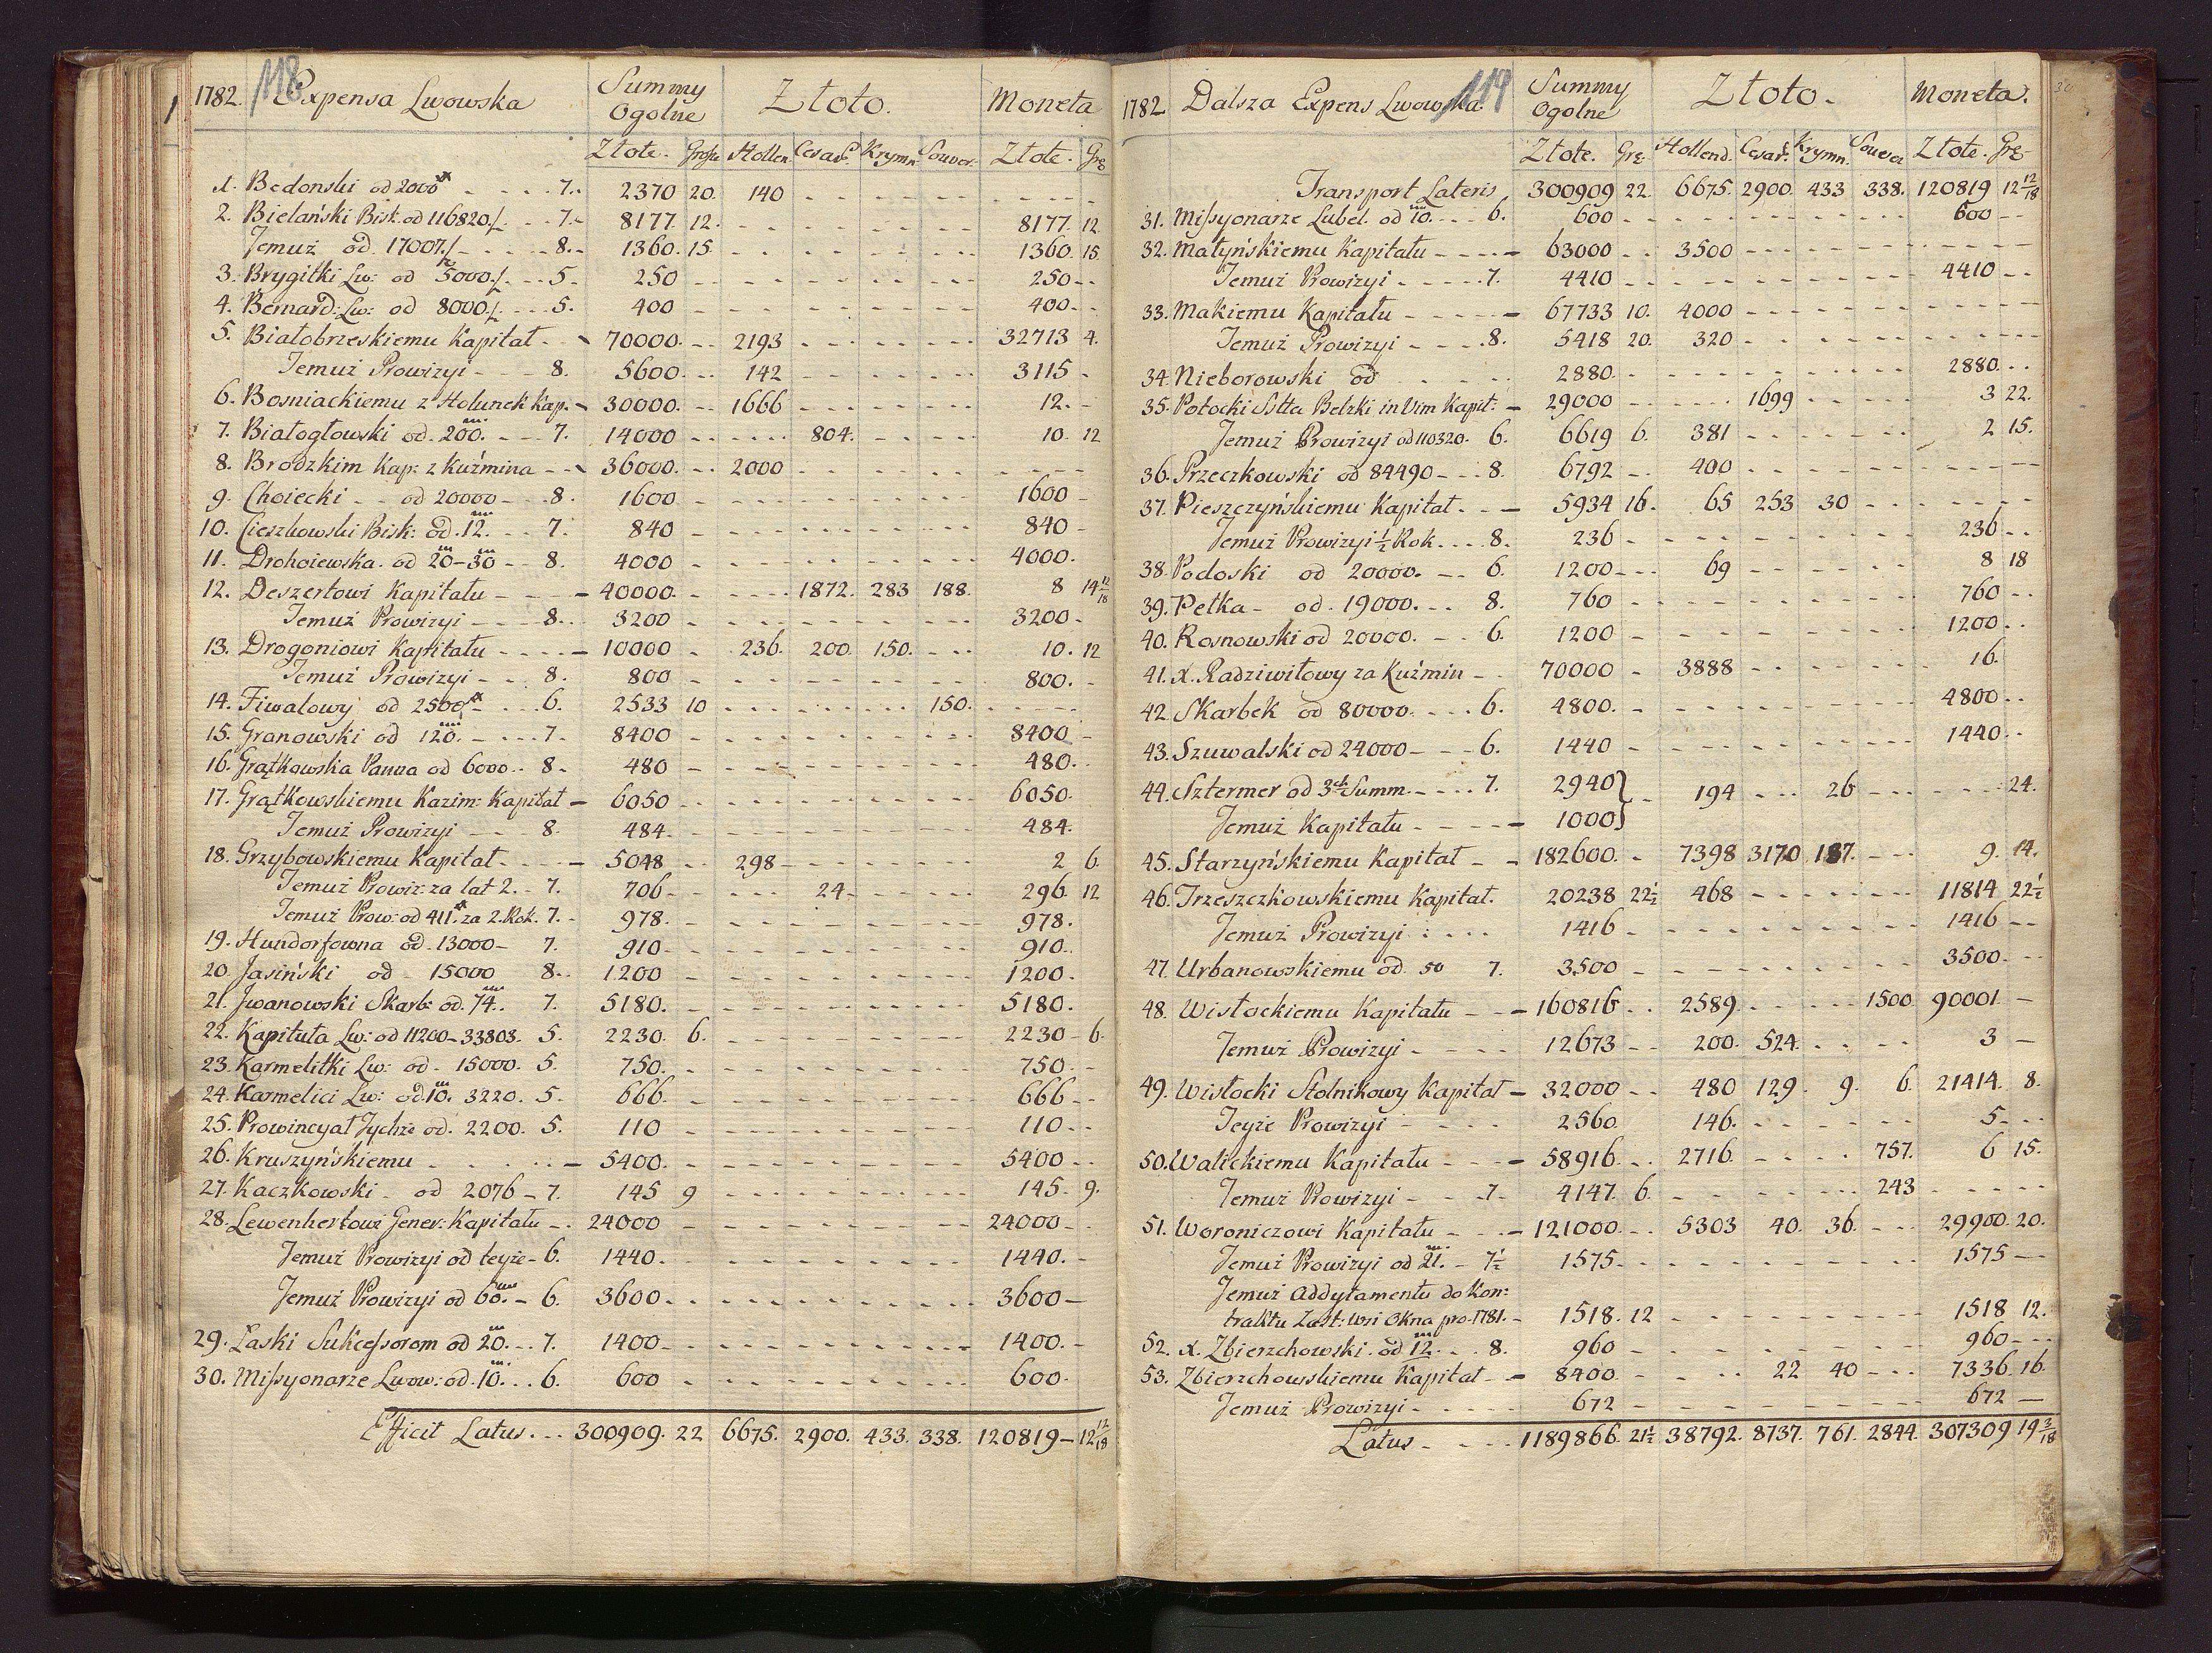 118
1782. Expensa Lwowska Summy Ogolne Złoto. Moneta
Złote. Grosze Hollen. Cesars. Krymn. Souver. Złote. Grz
1. Bedonski od 2000# - - - 7.. 2370 20. 140 - - - -
2. Bielański Bisk: od 116820./. - - 7.- 8177. 12. - - - - 8177. 12
Jemuż od. 17007./. - - - - 8.- 1360. 15. - - - - 1360. 15
3. Brygitki Lw: od 5000./. - - 5. 250 - - - - 250 - -
4. Bernard: Lw: od 8000./. - - 5. 400 - - - - 400 - -
5. Białobrzeskiemu Kapitał - - 70000. - - 2193 - - - 32713 4.
Jemuż Prowizyi - - - 8. 5600. - - 142 - - - 3115 -
6. Bosniackiemu z Holunek Kap. - 30000. - - 1666 - - - 12. -
7. Białogłowski od. 200.m - - - 7. 14000 - - - 804. - - 10. 12
8. Brodzkim Kap: z Kuźmina - - - 36000. - - 2000 - - - -
9. Choiecki - - od 20000 - - 8. 1600 - - - - 1600 -
10. Cieszkowski Bisk: od. 12.m - - 7. 840 - - - - 840 -
11. Drohoiewska. od 20m-30m - - 8. 4000 - - - - 4000. -
12. Deszertowi Kapitału - - - - 40000. - - - 1872. 283 188. 8 14 12/18
Jemuż Prowizyi - - - 8.. 3200 - - - - 3200 -
13. Drogoniowi Kapitału - - - - 10000 - 236. 200. 150. - - 10. 12
Jemuż Prowizyi - - 8. 800 - - - - 800. -
14. Fiwalowy od 2500# - - - 6. 2533 10 - - - 150. - - -
15. Granowski od 120.m - - - 7. 8400 - - - - 8400 -
16. Grątkowska Panna od 6000.. 8. 480 - - - - 480. -
17. Grątkowskiemu Kazim: Kapitał - 6050 - - - - 6050.
Jemuż Prowizyi - - - 8. 484. - - - - 484.
18. Grzybowskiemu Kapitał - - - - 5048 - - 298 - - - 2 6.
Jemuż Prowiz: za lat 2. - 7. 706 - - - 24 - - 296. 12
Jemuż Prow: od 411# za 2. Rok. 7. - 978. - - - - 978.
19. Hundorfowna od. 13000 - 7. 910 - - - - 910.
20. Jasiński od 15000 8.. 1200 - - - - 1200.
21. Jwanowski Skarb: od. 74.m 7. 5180. - - - - 5180.
22. Kapituła Lw: od 11200-33803. 5. 2230. 6. - - - 2230 - 6.
23. Karmelitki Lw: od. 15000. 5. 750. - - - - 750. -
24. Karmelici Lw: od. 10.m 3220. 5. 666. - - - - 666 - -
25. Prowincyał Jychże od. 2200. 5. 110 - - - - 110 - -
26. Kruszyńskiemu - - - - 5400. - - - - 5400 - -
27. Kaczkowski. od 2076 - 7. 145 9 - - - 145. 9.
28. Lewenhertowi Gener: Kapitału - . 24000 - - - - 24000 - -
Jemuż Prowizyi od teyże - 6. 1440. - - - - 1440. -
Jemuż Prowizyi od 60.m - 6. 3600. - - - - 3600 -
29. Łaski Sukcessorom od 20.m . 7. 1400 - - - - 1400. -
30. Missyonarze Lwow: od. 10.m . 6. 600 - - - - 600.
Efficit Latus . . . 300909. 22 6675. 2900. 433. 338. 120819 - 12 12/18
119
1782 Dalsza Expens Lwowska. Summy Ogolne Złoto. Moneta.
Złote. Grz. Hollend. Cesar. Krymn. Souver Złote. Grz-
Transport Lateris 300909 22. 6675. 2900. 433 338. 120819 12 12/18
31. Missyonarze Lubel. od 10.m - - 6. 600 - - - - 600 - -
32. Małyńskiemu Kapitału - - - - 63000 . . 3500 - - - -
Jemuż Prowizyi - - - - 7. 4410 - - - - 4410 - -
33. Makiemu Kapitału - - - - 67733 10. 4000 - - - -
Jemuż Prowizyi - - - - 8. 5418 20. 320 - - - -
34. Nieborowski od 2880 - - - - 2880. . .
35. Potocki Sstta Belzki in Vim Kapit: - 29000 - - - 1699 - - 3 22.
Jemuż Prowizyi od 110320. 6. 6619 6. 381 - - - 2 15.
36. Przeczkowski od 84490 - - - 8. 6792 - - 400 - - - -
37. Pieszczyńskiemu Kapitał. - - 5934 16. 65 253 30 - - -
Jemuż Prowizyi 1/2 Rok. - - 8. 236 - - - - 236 . .
38. Podoski od 20000. - - 6. 1200 - - 69 - - - 8 18
39. Petka - od. 19000. - - 8. 760 - - - - 760 - -
40. Rosnowski od 20000. - - 6. 1200 - - - - 1200 . .
41. X. Radziwiłowy za Kuźmin - - 70000 - 3888 - - - 16.
42. Skarbek od 80000. - - - 6. 4800. - - - - 4800 - -
43. Szuwalski od 24000 - - - 6. 1440 - - - - 1440 . .
44. Sztermer od 3ch Summ. - - - 7. 2940} . . 194 - - 26 - - - 24.
Jemuż Kapitału - - - - 1000}
45. Starzyńskiemu Kapitał - - 182600. - 7398 3170 187. - - 9. 14.
46. Trzeszczkowskiemu Kapitał. 20238 22 1/2 468 - - - 11814 22 1/2
Jemuż Prowizyi . . . 1416 - - - - 1416 - -
47. Urbanowskiemu od. 50 7. 3500 - - - - 3500 - -
48. Wisłockiemu Kapitału - - - 160816 . . 2589. - - - 1500. 90001. -
Jemuż Prowizyi - - - - 12673 - - 200. 524. - - 3 -
49. Wisłocki Stolnikowy Kapitał - 32000 - - 480 129. 9. 6. 21414. 8.
Teyże Prowizyi - - - 2560. 146. - - - 5 - -
50. Walickiemu Kapitału - - - 58916. . . 2716. - - - 757. 6 15.
Jemuż Prowizyi - - 7. 4147. 6. - - - 243 - - -
51. Woroniczowi Kapitału - - - 121000. . . 5303 40. 36. - - 29900. 20.
Jemuż Prowizyi od 21.m - 7 1/2 1575 - - - - 1575 - -
Jemuż Addytamentu do Kon:
traktu Zast: Wsi Okna pro. 1781. - 1518. 12 - - - - 1518 12.
52. X. Zbierzchowski. od 12.m - - 8. 960 - - - - 960 - -
53. Zbierzchowskiemu Kapitał - - 8400 - - - 22 40 - - 7336. 16.
Jemuż Prowizyi - - - - 672 - - - - 672 -
Latus - - - - 1189866. 21 1/2 38792. 8737. 761. 2844. 307309 19 3/18